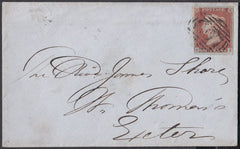 The Revd. James Shore
St. Thomas's
Exeter